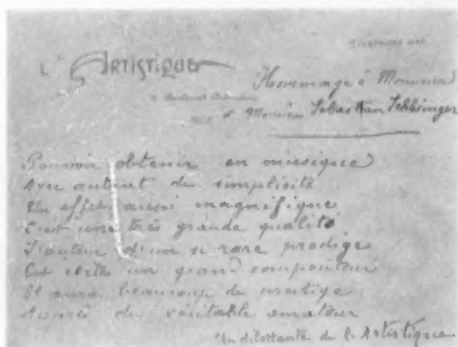 L'ARTISTIQUE
TELEPHONE
Boulevard
NICE
Hommage à Monsieur
à Monsieur Sebastian Schlesinger
Pouvoir obtenir en musique
Avec autant de simplicité
Un effet aussi magnifique
C'est une très grande qualité
L'auteur d'un si rare prodige
Est certes un grand compositeur
Il aura beaucoup de prestige
Auprès du véritable amateur
Un dilettante de l'Artistique